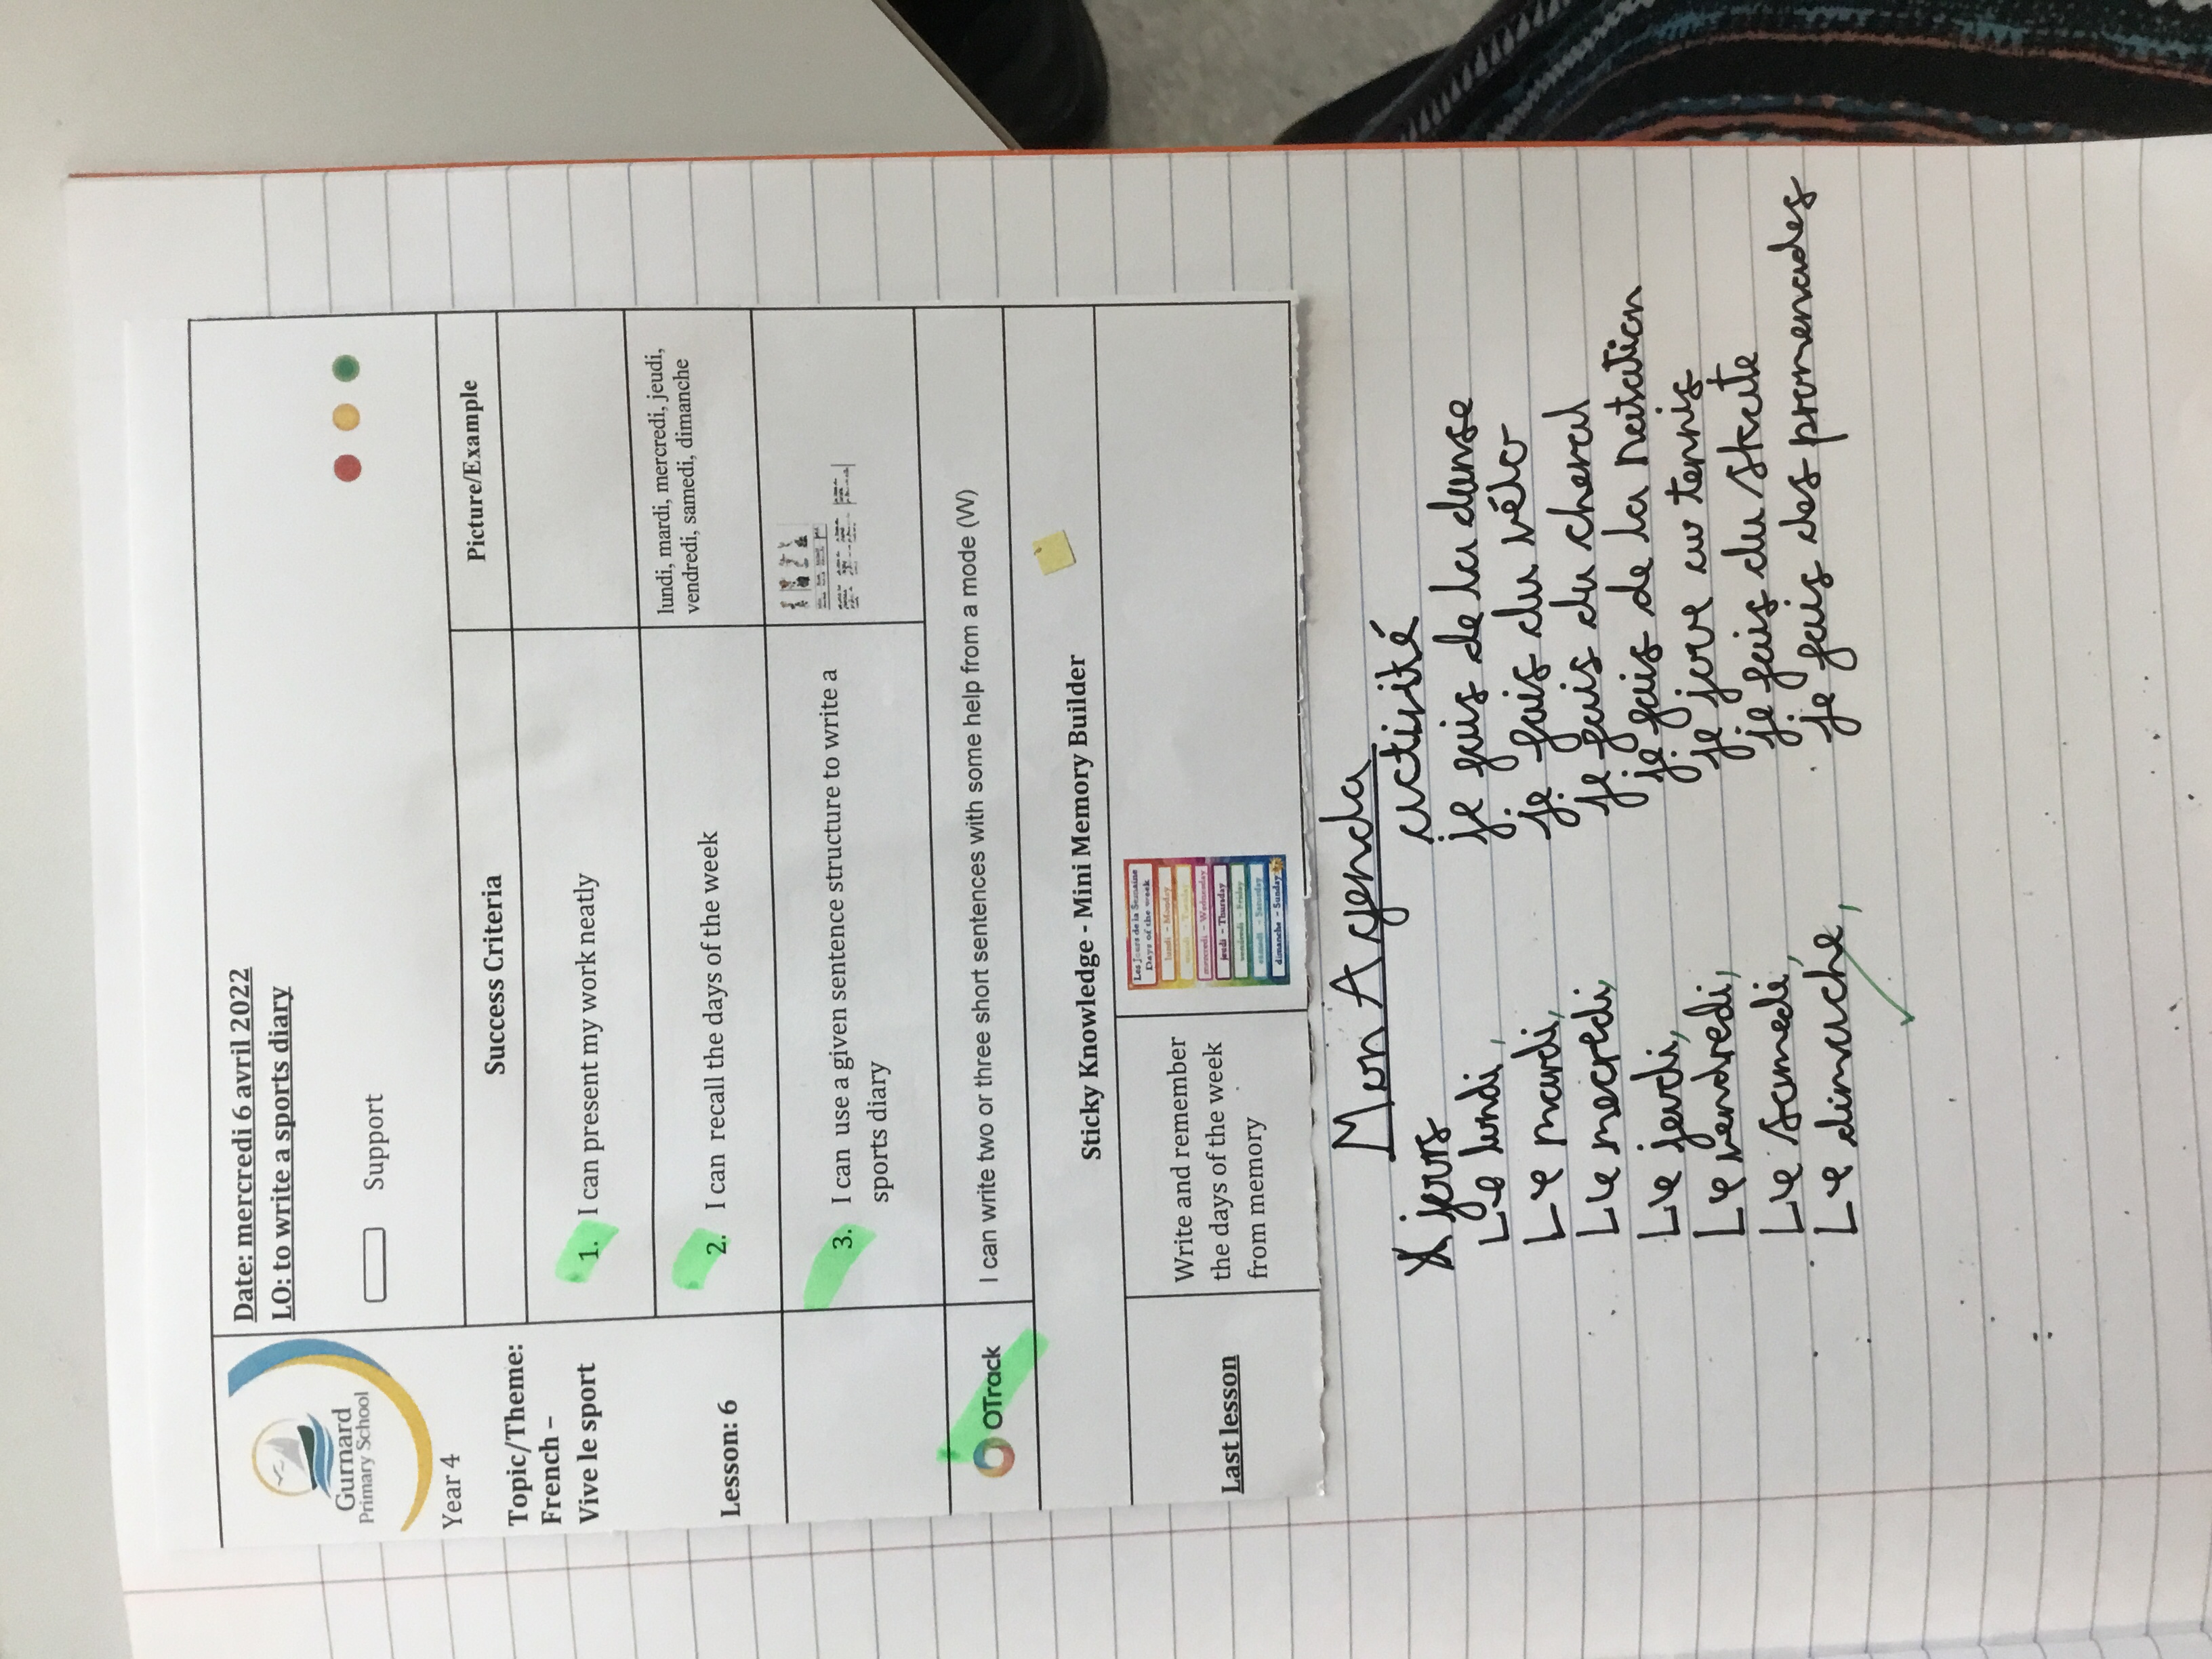 Gurnard
Primary School
Date: mercredi 6 avril 2022
LO: to write a sports diary
Support
Year 4
Success Criteria
Picture/Example
Topic/Theme:
French –
Vive le sport
1. I can present my work neatly
Lesson: 6
2. I can recall the days of the week
lundi, mardi, mercredi, jeudi,
vendredi, samedi, dimanche
3. I can use a given sentence structure to write a
sports diary
OTrack
I can write two or three short sentences with some help from a mode (W)
Sticky Knowledge - Mini Memory Builder
Last lesson
Write and remember
the days of the week
from memory
Les Jours de la Semaine
Days of the week
lundi - Monday
mardi - Tuesday
mercredi - Wednesday
jeudi - Thursday
vendredi - Friday
samedi - Saturday
dimanche - Sunday
Mon Agenda
jours activité
Le lundi, je fais de la danse
Le mardi, je fais du vélo
Le mecredi, je fais du cheval
Le jeudi, je fais de la natation
Le vendredi, je joue au tennis
Le samedi, je fais du skate
Le dimache, je fais des promenades